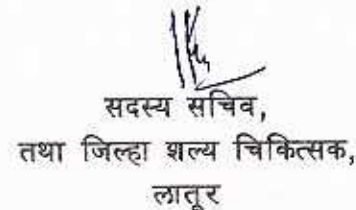 सदस्य सचिव,
तथा जिल्हा शल्य चिकित्सक,
लातूर